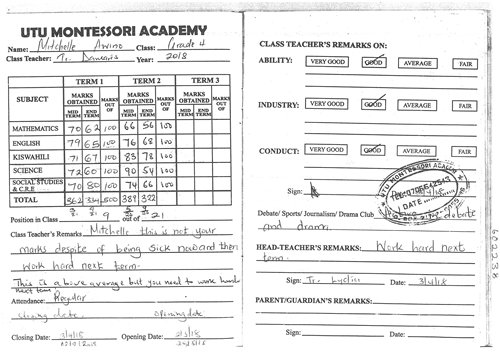 UTU MONTESSORI ACADEMY
Name: Mitchelle Awino Class: Grade 4
Class Teacher: Tr. Damaris Year: 2018
SUBJECT TERM 1 TERM 2 TERM 3
MARKS OBTAINED MARKS OUT OF MARKS OBTAINED MARKS OUT OF MARKS OBTAINED MARKS OUT OF
MID TERM END TERM MID TERM END TERM MID TERM END TERM
MATHEMATICS 70 62 100 66 56 100
ENGLISH 79 65 100 76 68 100
KISWAHILI 71 67 100 83 78 100
SCIENCE 72 60 100 90 54 100
SOCIAL STUDIES & C.R.E 70 80 100 74 66 100
TOTAL 362 334 500 389 322
Position in Class 9 out of 21
Class Teacher's Remarks Mitchelle this is not your
marks despite of being sick
work hard next term.
This is a above average but you need to work hard
next term
Attendance: Regular
closing date opening date
Closing Date: 3/4/18 Opening Date:
CLASS TEACHER'S REMARKS ON:
ABILITY: VERY GOOD GOOD AVERAGE FAIR
INDUSTRY: VERY GOOD GOOD AVERAGE FAIR
CONDUCT: VERY GOOD GOOD AVERAGE FAIR
Sign:
UTU MONTESSORI ACADEMY
DATE
Debate/ Sports/ Journalism/ Drama Club debate
and drama
HEAD-TEACHER'S REMARKS: Work hard next
term.
Sign: Tr. Date: 3/4/18
PARENT/GUARDIAN'S REMARKS:
Sign: Date: